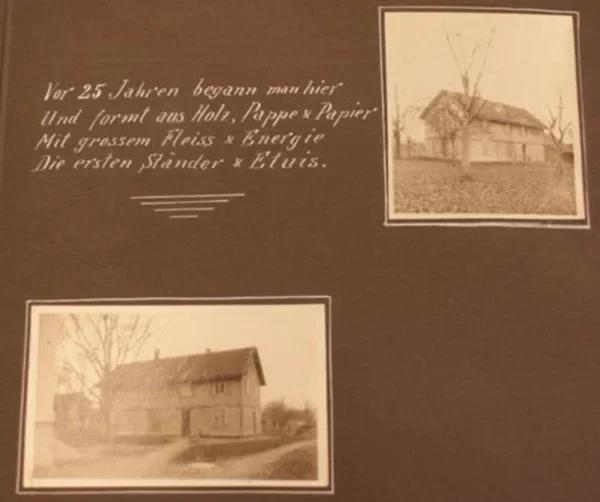 Vor 25 Jahren begann man hier
Und formt aus Holz, Pappe & Papier
Mit grossem Fleiss & Energie
Die ersten Ständer & Etuis.